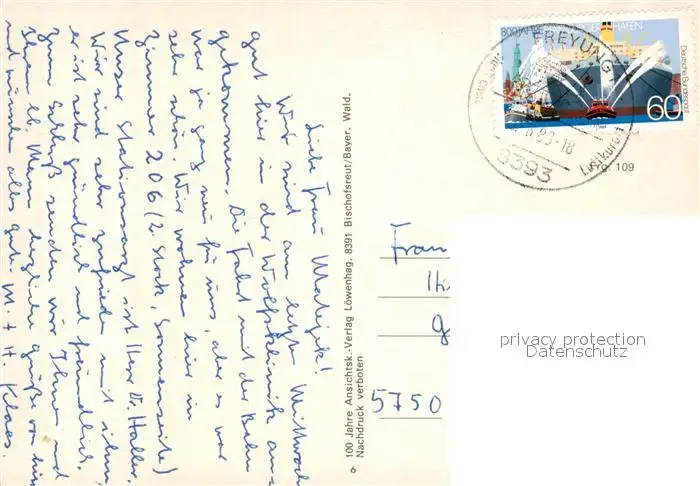 Liebe Frau Matejek!
Wir sind am letzten Mittwoch
gut hier in der Wolfsteinklinik an-
gekommen. Die Fahrt mit der Bahn
war ja ganz neu für uns, aber es war
sehr schön. Wir wohnen hier in
Zimmer 206 (2. Stock, Sonnenseite)
Unser Stationsarzt ist Herr Dr. Haller.
Wir sind sehr zufrieden mit ihm,
er ist sehr gründlich und freundlich.
Zum Schluß senden wir Ihnen und
Ihrem lb. Mann herzliche Grüße von hier
und wünschen alles gute. M. + H. Klaes.
100 Jahre Ansichtsk.-Verlag Löwenhag, 8391 Bischofsreut/Bayer. Wald.
Nachdruck verboten
6
800 JAHRE HAFEN
Deutsche Bundespost
60
FREYUNG
89-18
8393
Luftkurort
109
Frau
5750
privacy protection
Datenschutz